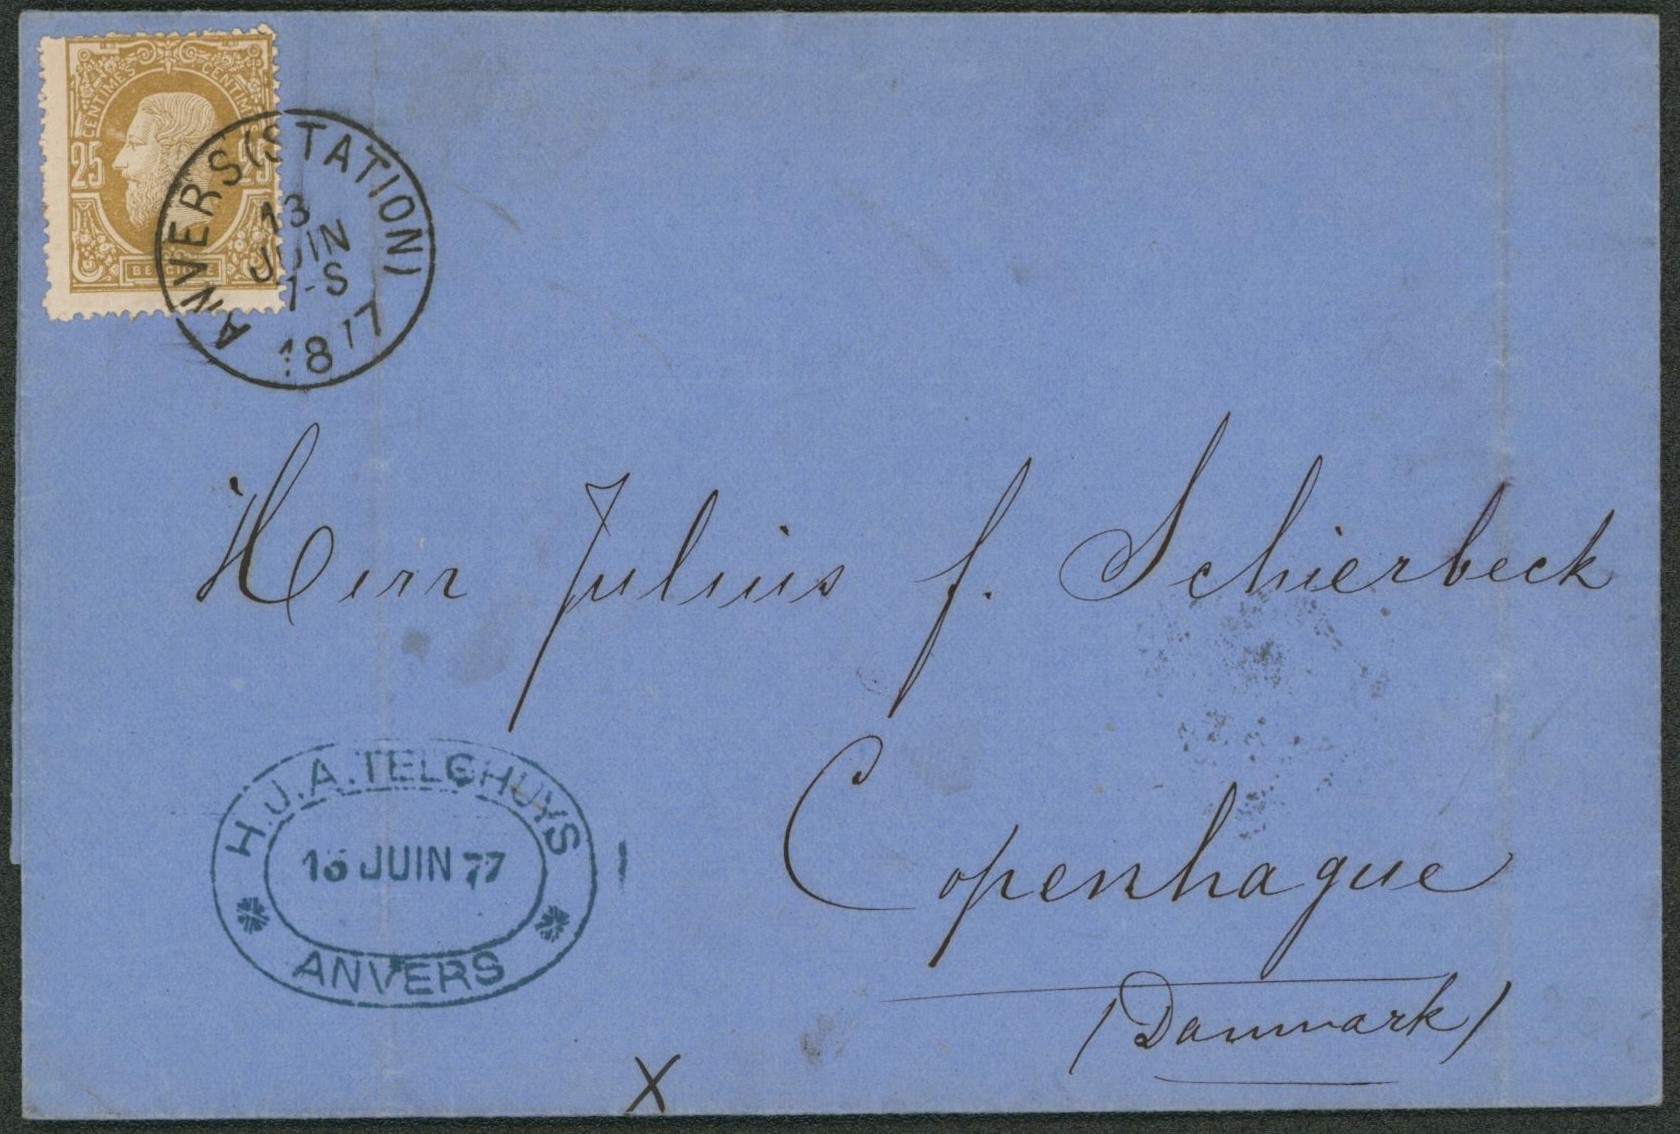 CENTIMES CENTIMES
25 25
BELGIQUE
ANVERS (STATION)
13
JUIN
7-S
1877
Herr Julius f. Schierbeck
Copenhague
(Danmark)
H.J.A. TELGHUYS
JUIN 77
ANVERS
X